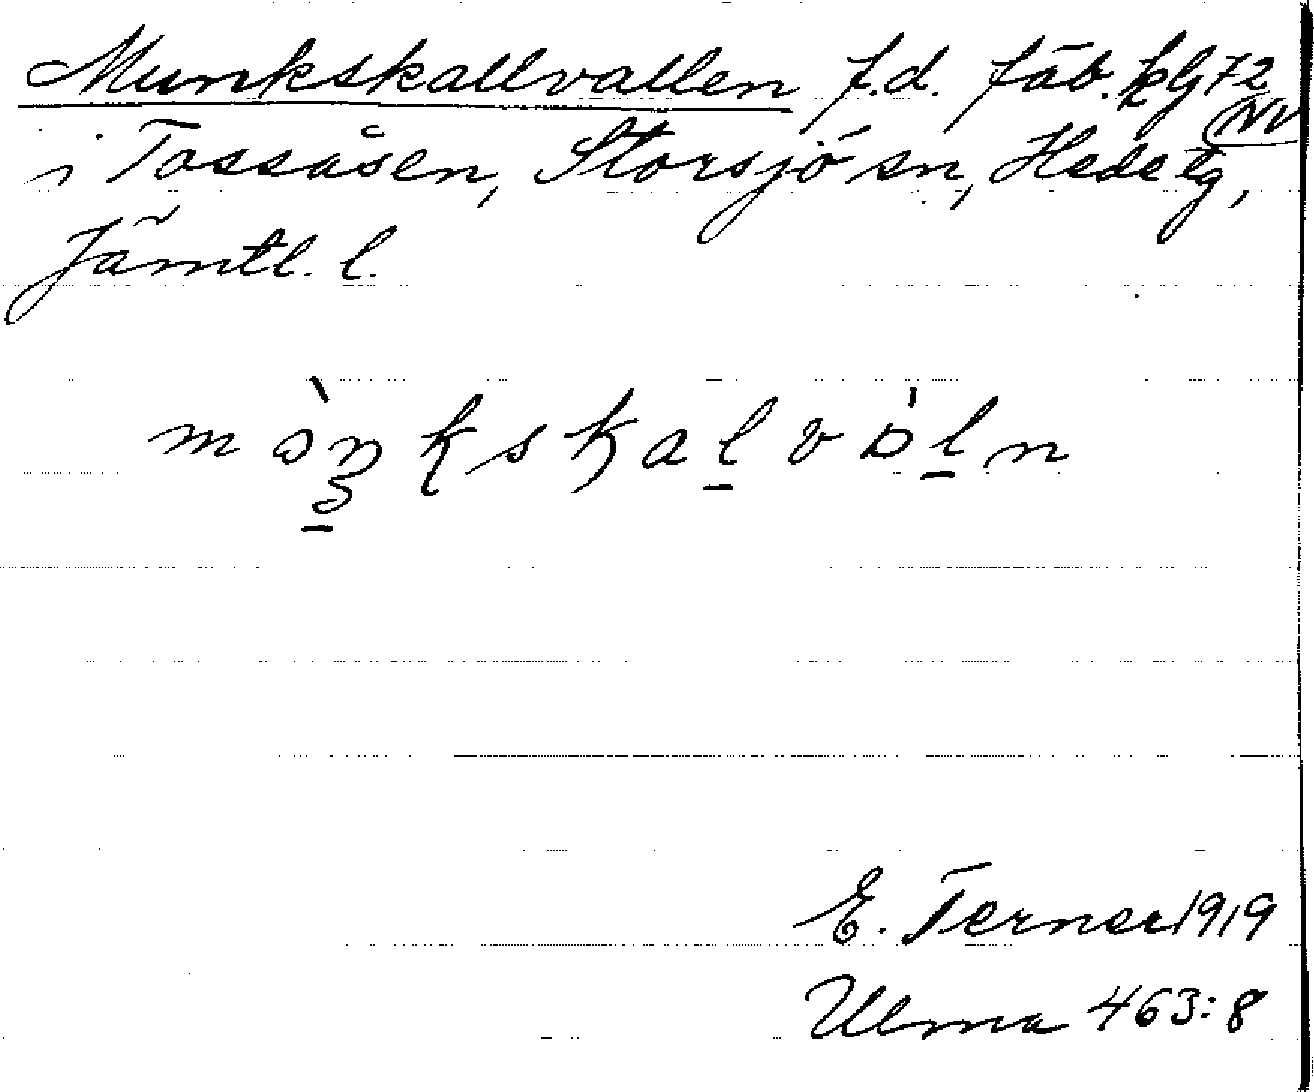 Munkskallvallen f.d. fäb. kbl 72
NV
i Tossåsen, Storsjö sn, Hede tg,
Jämtl. l.
E. Terner 1919
Ulma 463:8